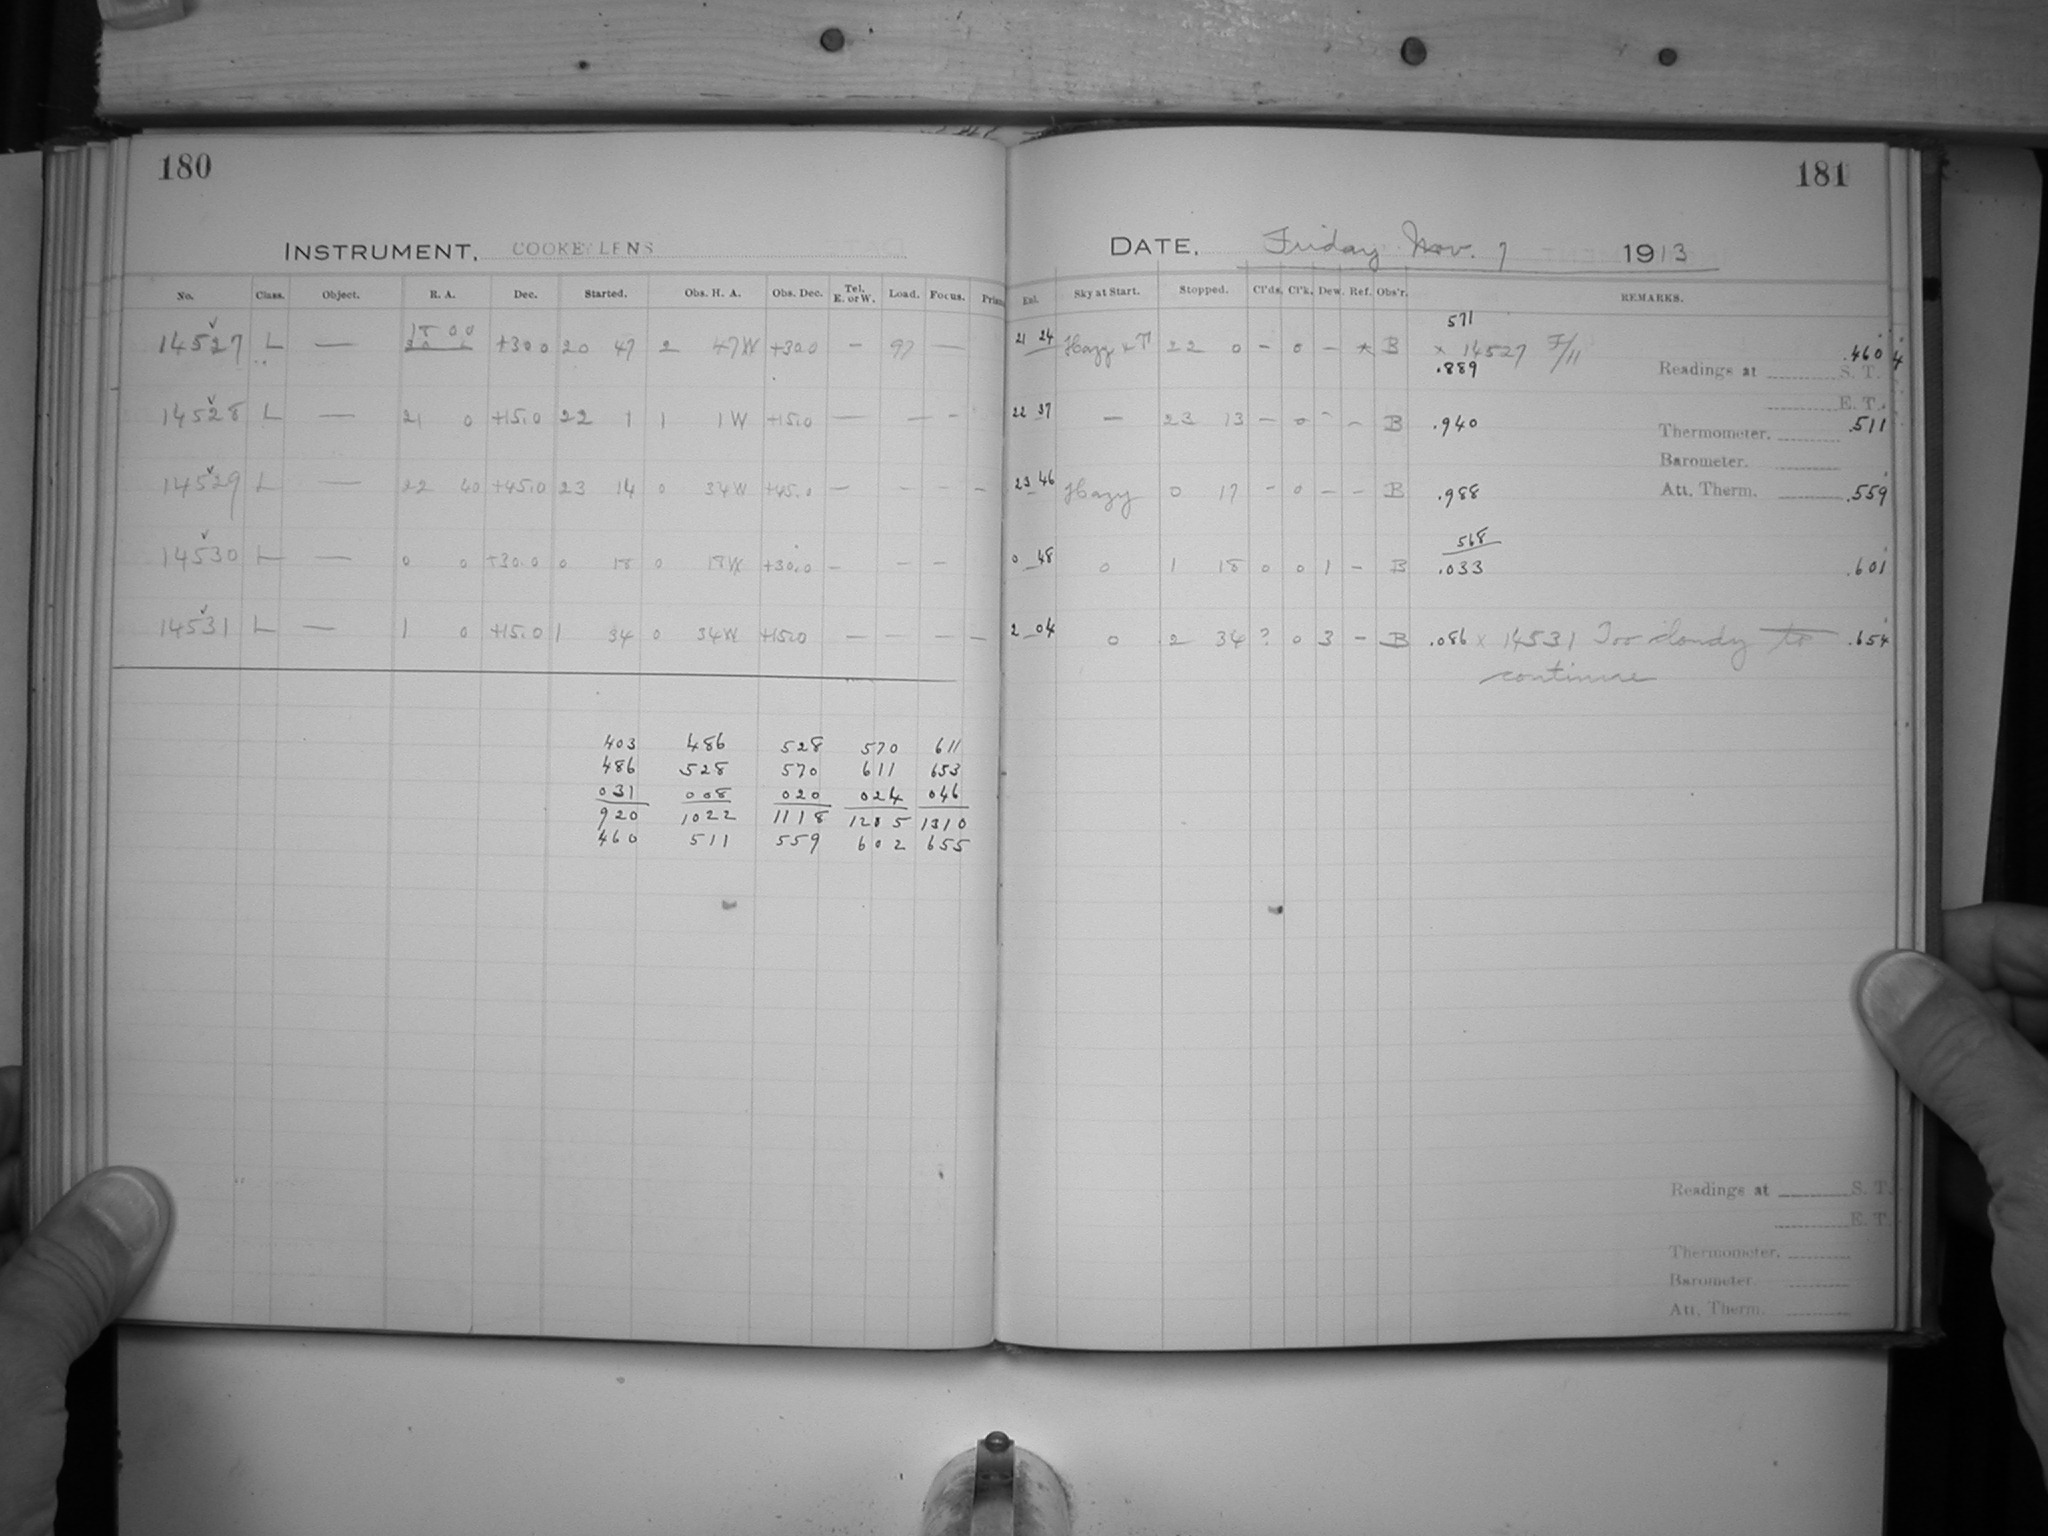 180
INSTRUMENT. COOKE LENS
No. Class. Object. R. A. Dec. Started. Obs. H. A. Obs. Dec. Tel. E. or W. Load. Focus.
14527 L — 18 00 +30.0 20 47 2 47W +30.0 — 97 —
14528 L — 21 0 +15.0 22 1 1 1W +15.0 — — -
14529 L — 22 40 +45.0 23 14 0 34W +45.0 — - - -
14530 L — 0 0 +30.0 0 18 0 18W +30.0 — - -
14531 L — 1 0 +15.0 1 34 0 34W +15.0 — - - -
403 486 528 570 611
486 528 570 611 653
031 008 020 024 046
920 1022 1118 1205 1310
460 511 559 602 655
181
DATE. Friday Nov. 7 1913
Exl. Sky at Start. Stopped. Cl'ds. Cl'k. Dew. Ref. Obs'r. REMARKS.
571
21 24 Hazy & T 22 0 - 0 - * B × 14527 F/11 .460 4
.889
Readings at S. T.
E. T.
22 37 — 23 13 - 0 - - B .940 .511
Thermometer.
Barometer.
23 46 Hazy 0 17 - 0 - - B .988 Att. Therm. .559
568
0 48 0 1 18 0 0 1 - B .033 .601
2 04 0 2 34 ? 0 3 - B .086 × 14531 Too cloudy to .654
continue
Readings at S. T.
E. T.
Thermometer.
Barometer.
Att. Therm.